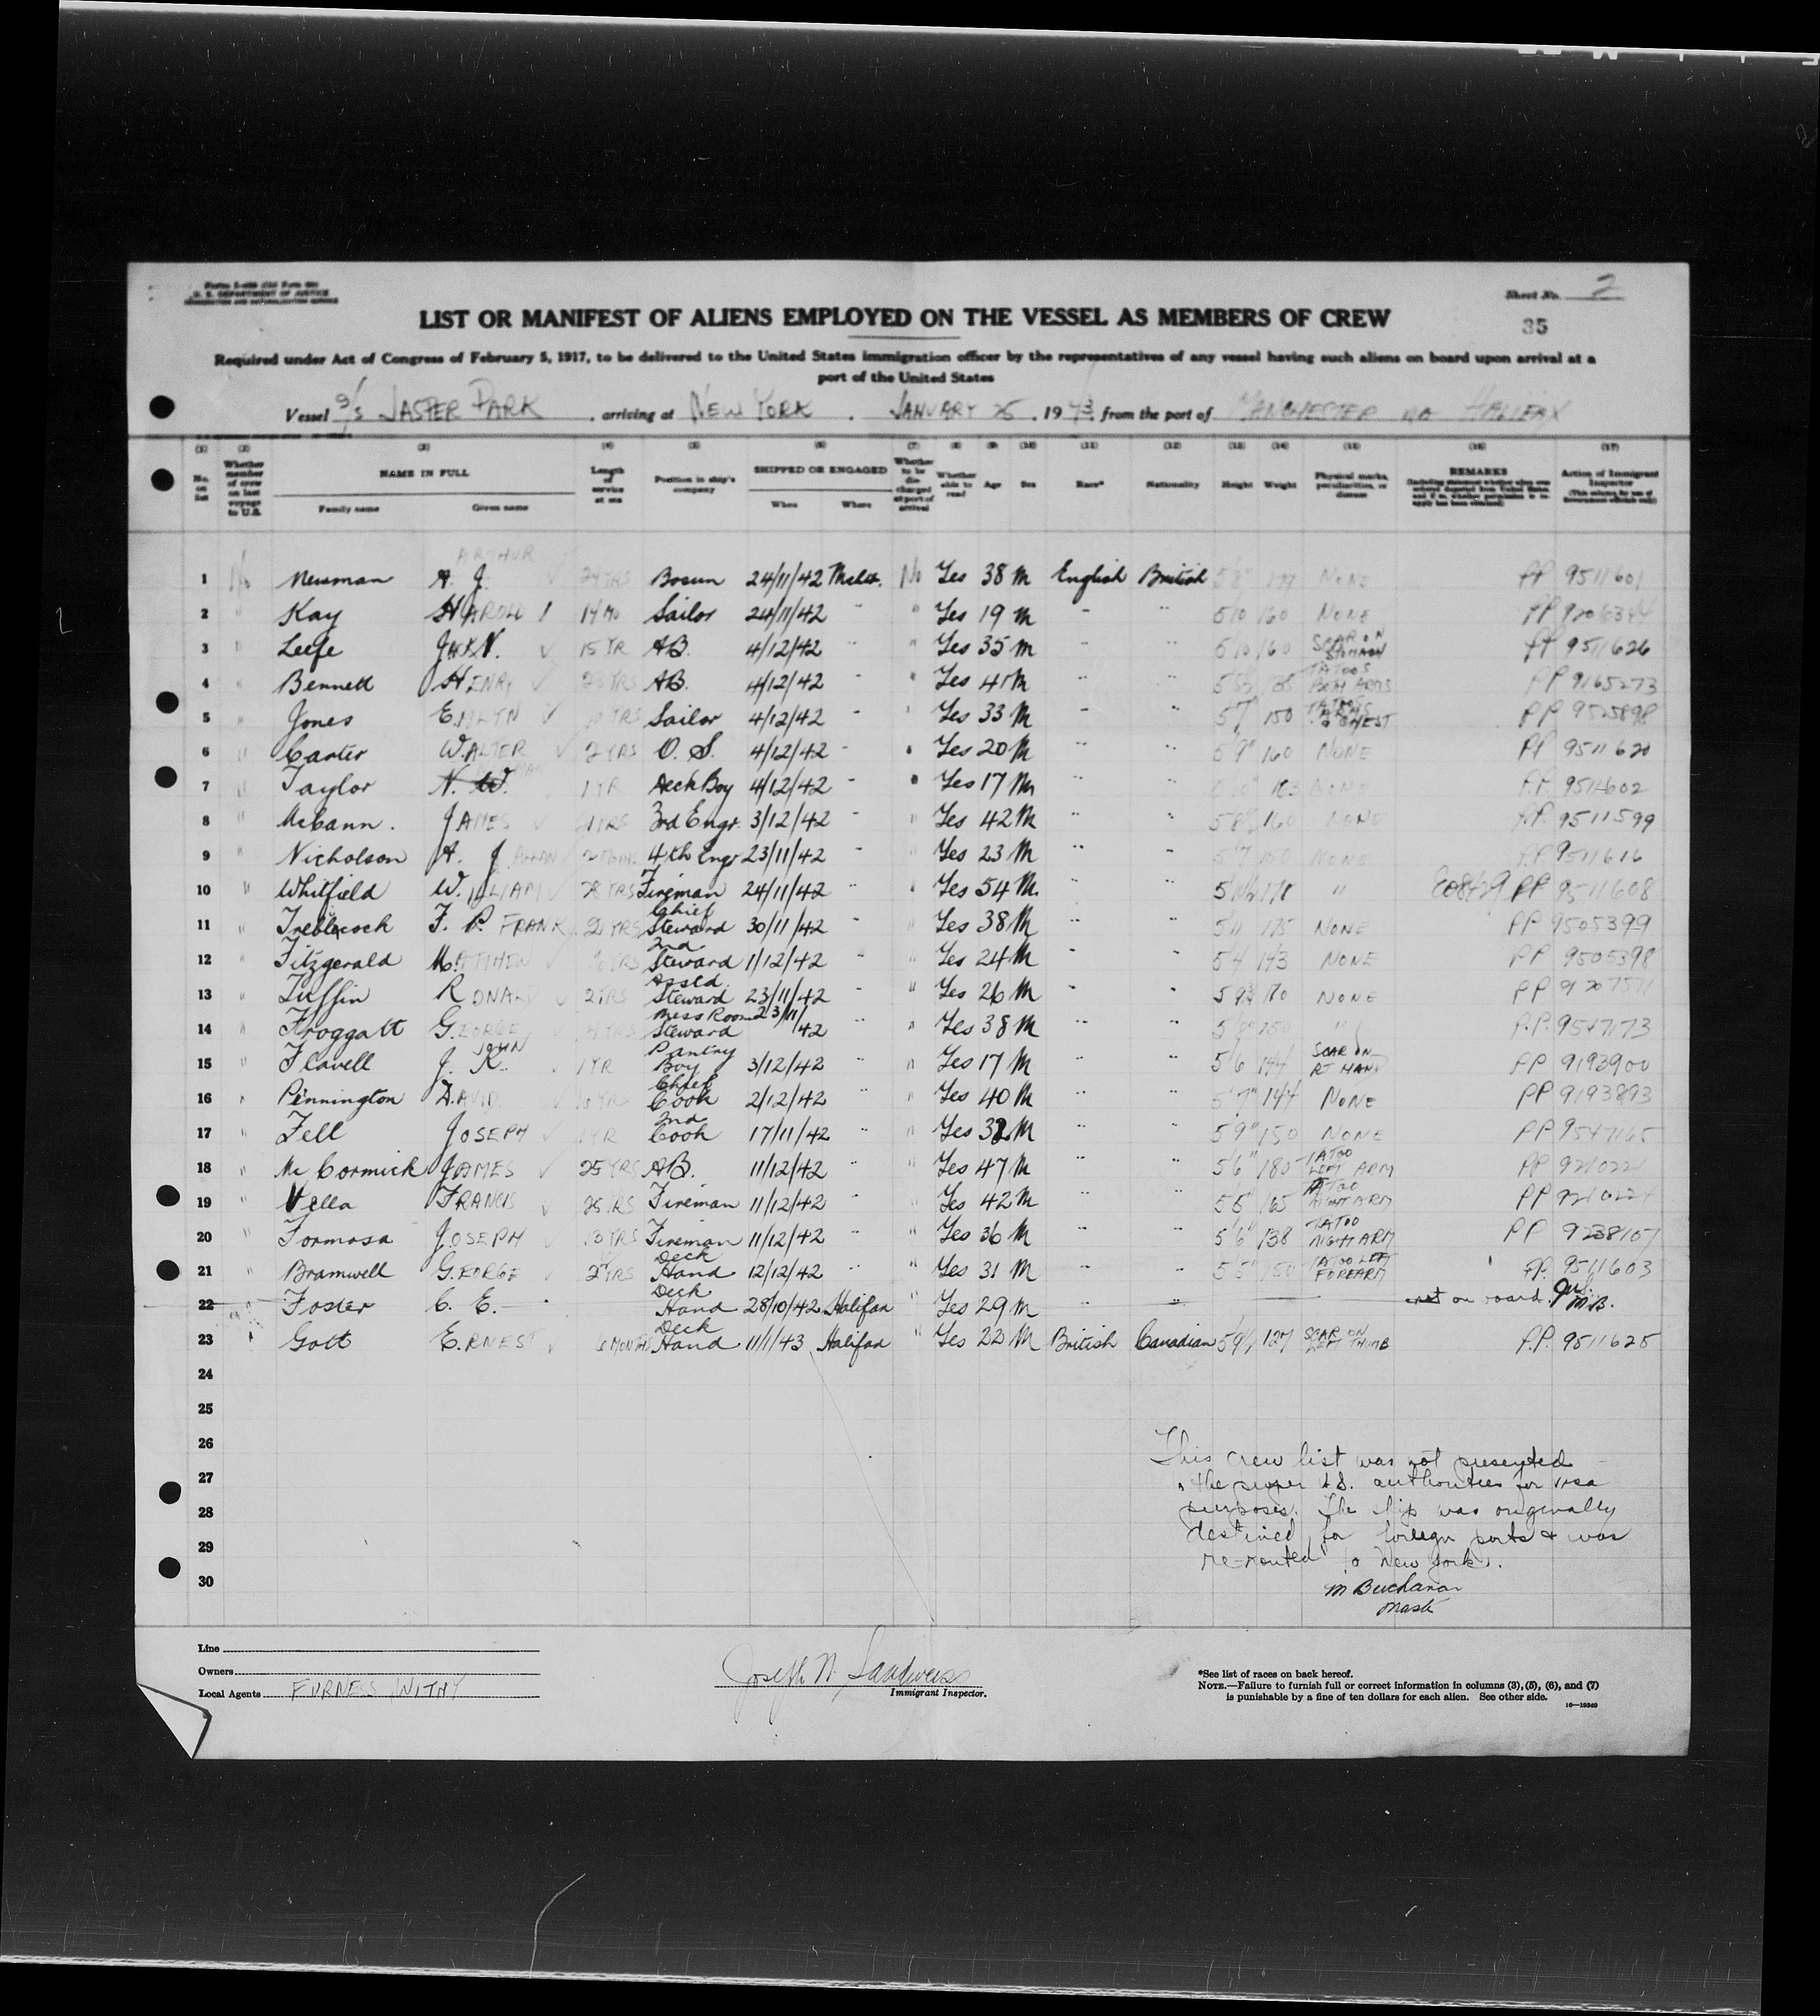 U. S. DEPARTMENT OF JUSTICE
IMMIGRATION AND NATURALIZATION SERVICE
Sheet No. 2
LIST OR MANIFEST OF ALIENS EMPLOYED ON THE VESSEL AS MEMBERS OF CREW
35
Required under Act of Congress of February 5, 1917, to be delivered to the United States immigration officer by the representatives of any vessel having such aliens on board upon arrival at a
port of the United States
Vessel S/S JASPER PARK, arriving at NEW YORK, JANUARY 25, 1943, from the port of MANCHESTER via HALIFAX
(1) (2) (3) (4) (5) (6) (7) (8) (9) (10) (11) (12) (13) (14) (15) (16) (17)
No. on list Whether member of crew on last voyage to U.S. NAME IN FULL Family name Given name Length of service at sea Position in ship's company SHIPPED OR ENGAGED When Where Whether to be discharged at port of arrival Whether able to read Age Sex Race* Nationality Height Weight Physical marks, peculiarities, or disease REMARKS Action of Immigrant Inspector
ARTHUR
1 No Newman A. J. 24 YRS Bosun 24/11/42 Mchr. No Yes 38 M English British 5'8" 177 NONE PP 9511601
2 " Kay HAROLD 14 Mo Sailor 24/11/42 " " Yes 19 M " " 5'10 160 NONE PP
3 " Leefe JACK N. 15 YR AB. 4/12/42 " " Yes 35 M " " 5'10 160 SCAR ON STOMACH PP 9511626
4 " Bennett HENRY 23 YRS AB. 4/12/42 " " Yes 41 M " " TATOOS BOTH ARMS PP 9165273
5 " Jones EMLYN YRS Sailor 4/12/42 " " Yes 33 M " " 5'7 150 TATOOS ARMS & CHEST PP 9525898
6 " Carter WALTER 2 YRS O. S. 4/12/42 " " Yes 20 M " " 5'9" 160 NONE PP 9511620
7 " Taylor N. W. 1 YR Deck Boy 4/12/42 " " Yes 17 M " " 163 NONE P.P. 9511602
8 " McCann. JAMES 21 YRS 3rd Engr. 3/12/42 " " Yes 42 M " " 160 NONE P.P. 9511599
9 " Nicholson A. J. ALLAN 4th Engr 23/11/42 " Yes 23 M " " 5'7 150 NONE PP 9511616
10 " Whitfield WILLIAM 28 YRS Fireman 24/11/42 " " Yes 54 M. " " 171 " PP 9511608
11 " Treblecock F. P. FRANK 20 YRS Chief Steward 30/11/42 " " Yes 38 M " " 5'11 175 NONE PP 9505399
12 " Fitzgerald MATTHEW YRS 2nd Steward 1/12/42 " " Yes 24 M " " 5'4 143 NONE PP 9505398
13 " Tuffin RONALD 2 YRS Asstd. Steward 23/11/42 " " Yes 26 M " " 170 NONE PP
14 " Froggatt GEORGE YRS Mess Room Steward 23/11/42 " Yes 38 M " " " P.P. 9547173
15 " Flavell J. K. JOHN 1 YR Pantry Boy 3/12/42 " " Yes 17 M " " 5'6 144 SCAR ON RT HAND PP 9193900
16 " Pennington DAVID YRS Chief Cook 2/12/42 " " Yes 40 M " " 5'7" 144 NONE PP 9193893
17 " Fell JOSEPH YR 2nd Cook 17/11/42 " Yes 32 M " " 5'9" 150 NONE PP 9547165
18 " McCormick JAMES 25 YRS AB. 11/12/42 " " Yes 47 M " " 5'6" 180 TATOO LEFT ARM PP
19 " Vella FRANCIS 25 YRS Fireman 11/12/42 " " Yes 42 M " " 5'5" 165 TATOO RIGHT ARM PP
20 " Formosa JOSEPH 13 YRS Fireman 11/12/42 " " Yes 36 M " " 5'6" 138 TATOO RIGHT ARM PP 9238107
21 " Bramwell GEORGE 2 YRS Deck Hand 12/12/42 " " Yes 31 M " " 5'5" 150 TATOO LEFT FOREARM PP. 9511603
22 Foster C. E. Deck Hand 28/10/42 Halifax " Yes 29 M " " not on board. M.B.
23 " Gott ERNEST 6 MONTHS Deck Hand 11/1/43 Halifax " Yes 22 M British Canadian 5'9½ 127 SCAR ON LEFT THUMB P.P. 9511625
24
25
26
27
28
29
30
This crew list was not presented
the proper U.S. authorities for visa
purposes. The ship was originally
destined for foreign ports & was
re-routed to New York.
M Buchanan
Master
Line
Owners
Local Agents FURNESS WITHY
Joseph N. Sandweiss
Immigrant Inspector.
*See list of races on back hereof.
NOTE.—Failure to furnish full or correct information in columns (3), (5), (6), and (7)
is punishable by a fine of ten dollars for each alien. See other side.
16—19349